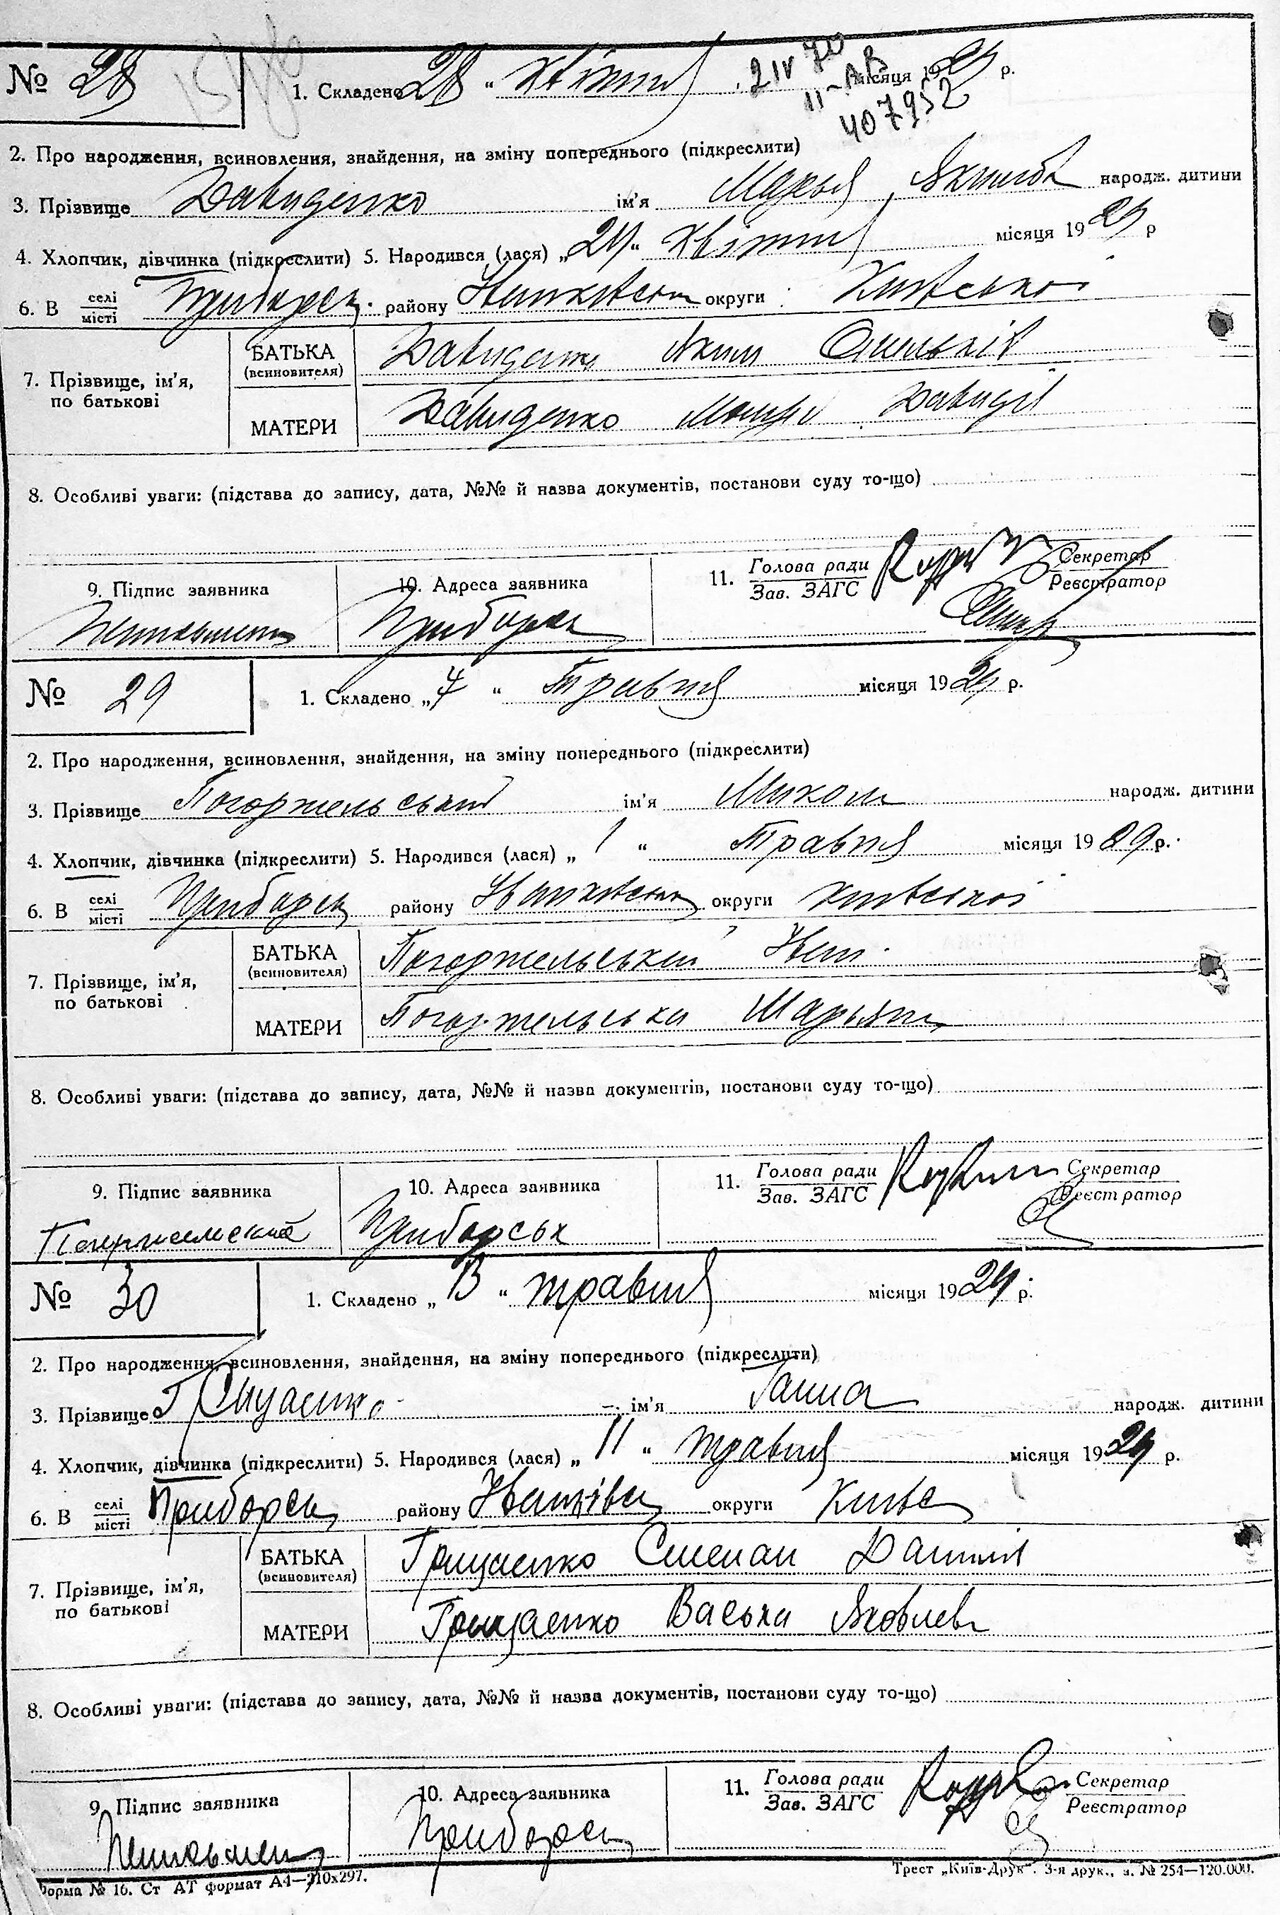 № 28
1. Складено „28“ квітня місяця 1929 р.
2 IV 70
II-АВ
407952
2. Про народження, всиновлення, знайдення, на зміну попереднього (підкреслити)
3. Прізвище Давиденко ім'я Марья народж. дитини
4. Хлопчик, дівчинка (підкреслити) 5. Народився (лася) „24“ квітня місяця 1929 р
6. В селі/місті Приборск району Іванківськ округи Київської
7. Прізвище, ім'я, по батькові
БАТЬКА (всиновителя) Давиденко Яким Омельків
МАТЕРИ Давиденко Давидів
8. Особливі уваги: (підстава до запису, дата, №№ й назва документів, постанови суду то-що)
9. Підпис заявника
10. Адреса заявника Приборск
11. Голова ради/Зав. ЗАГС Секретар/Реєстратор
№ 29
1. Складено „4“ Травня місяця 1929 р.
2. Про народження, всиновлення, знайдення, на зміну попереднього (підкреслити)
3. Прізвище Погоржельський ім'я Микола народж. дитини
4. Хлопчик, дівчинка (підкреслити) 5. Народився (лася) „1“ Травня місяця 1929 р.
6. В селі/місті Приборск району Іванківськ округи київської
7. Прізвище, ім'я, по батькові
БАТЬКА (всиновителя) Погоржельський Іван
МАТЕРИ Погоржельська Марьяна
8. Особливі уваги: (підстава до запису, дата, №№ й назва документів, постанови суду то-що)
9. Підпис заявника
10. Адреса заявника Приборськ
11. Голова ради/Зав. ЗАГС Секретар/Реєстратор
№ 30
1. Складено „13“ травня місяця 1929 р.
2. Про народження, всиновлення, знайдення, на зміну попереднього (підкреслити)
3. Прізвище Грищенко ім'я Ганна народж. дитини
4. Хлопчик, дівчинка (підкреслити) 5. Народився (лася) „11“ травня місяця 1929 р.
6. В селі/місті Приборск району Іванківс округи Київс
7. Прізвище, ім'я, по батькові
БАТЬКА (всиновителя) Грищенко Степан Данилів
МАТЕРИ Грищенко Васька Яковлев
8. Особливі уваги: (підстава до запису, дата, №№ й назва документів, постанови суду то-що)
9. Підпис заявника
10. Адреса заявника Приборск
11. Голова ради/Зав. ЗАГС Секретар/Реєстратор
Форма № 16. Ст АТ формат А4—210х297.
Трест „Київ-Друк“. 3-я друк., з. № 254—120.000.